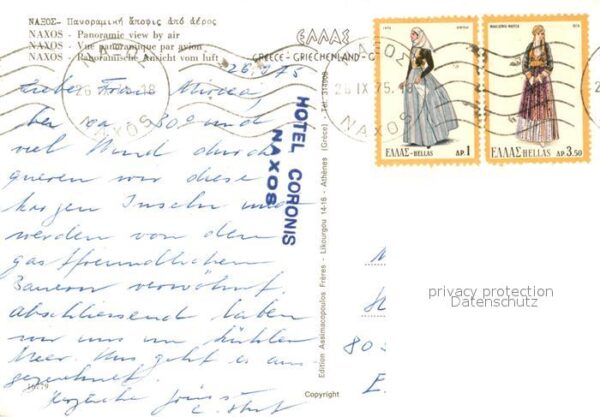 ΝΑΞΟΣ- Πανοραμική ἄποψις ἀπό ἀέρος
NAXOS - Panoramic view by air
NAXOS - Vue panoramique par avion
NAXOS - Panoramische Ansicht vom luft
ΕΛΛΑΣ
GREECE-GRIECHENLAND-G
26.9.75
Liebe Frau
bei ca. 30° und
viel Wind durch
queren wir diese
kargen Inseln und
werden von den
gastfreundlichen
Bauern verwöhnt.
abschliessend laben
wir uns im kühlen
Meer. Uns geht es aus
gezeichnet.
Herzliche Grüsse
10179
HOTEL CORONIS
NAXOS
Edition Assimacopoulos Frères - Likourgou 14-16 - Athènes (Grèce) - Tel.
Copyright
ΝΑΞΟΣ
26 IX 75.18
NAXOS
ΝΑΞΟΣ
26 IX 75.18
NAXOS
ΕΛΛΑΣ-HELLAS ΔΡ 1
ΕΛΛΑΣ-HELLAS ΔΡ 3.50
80
E.
privacy protection
Datenschutz